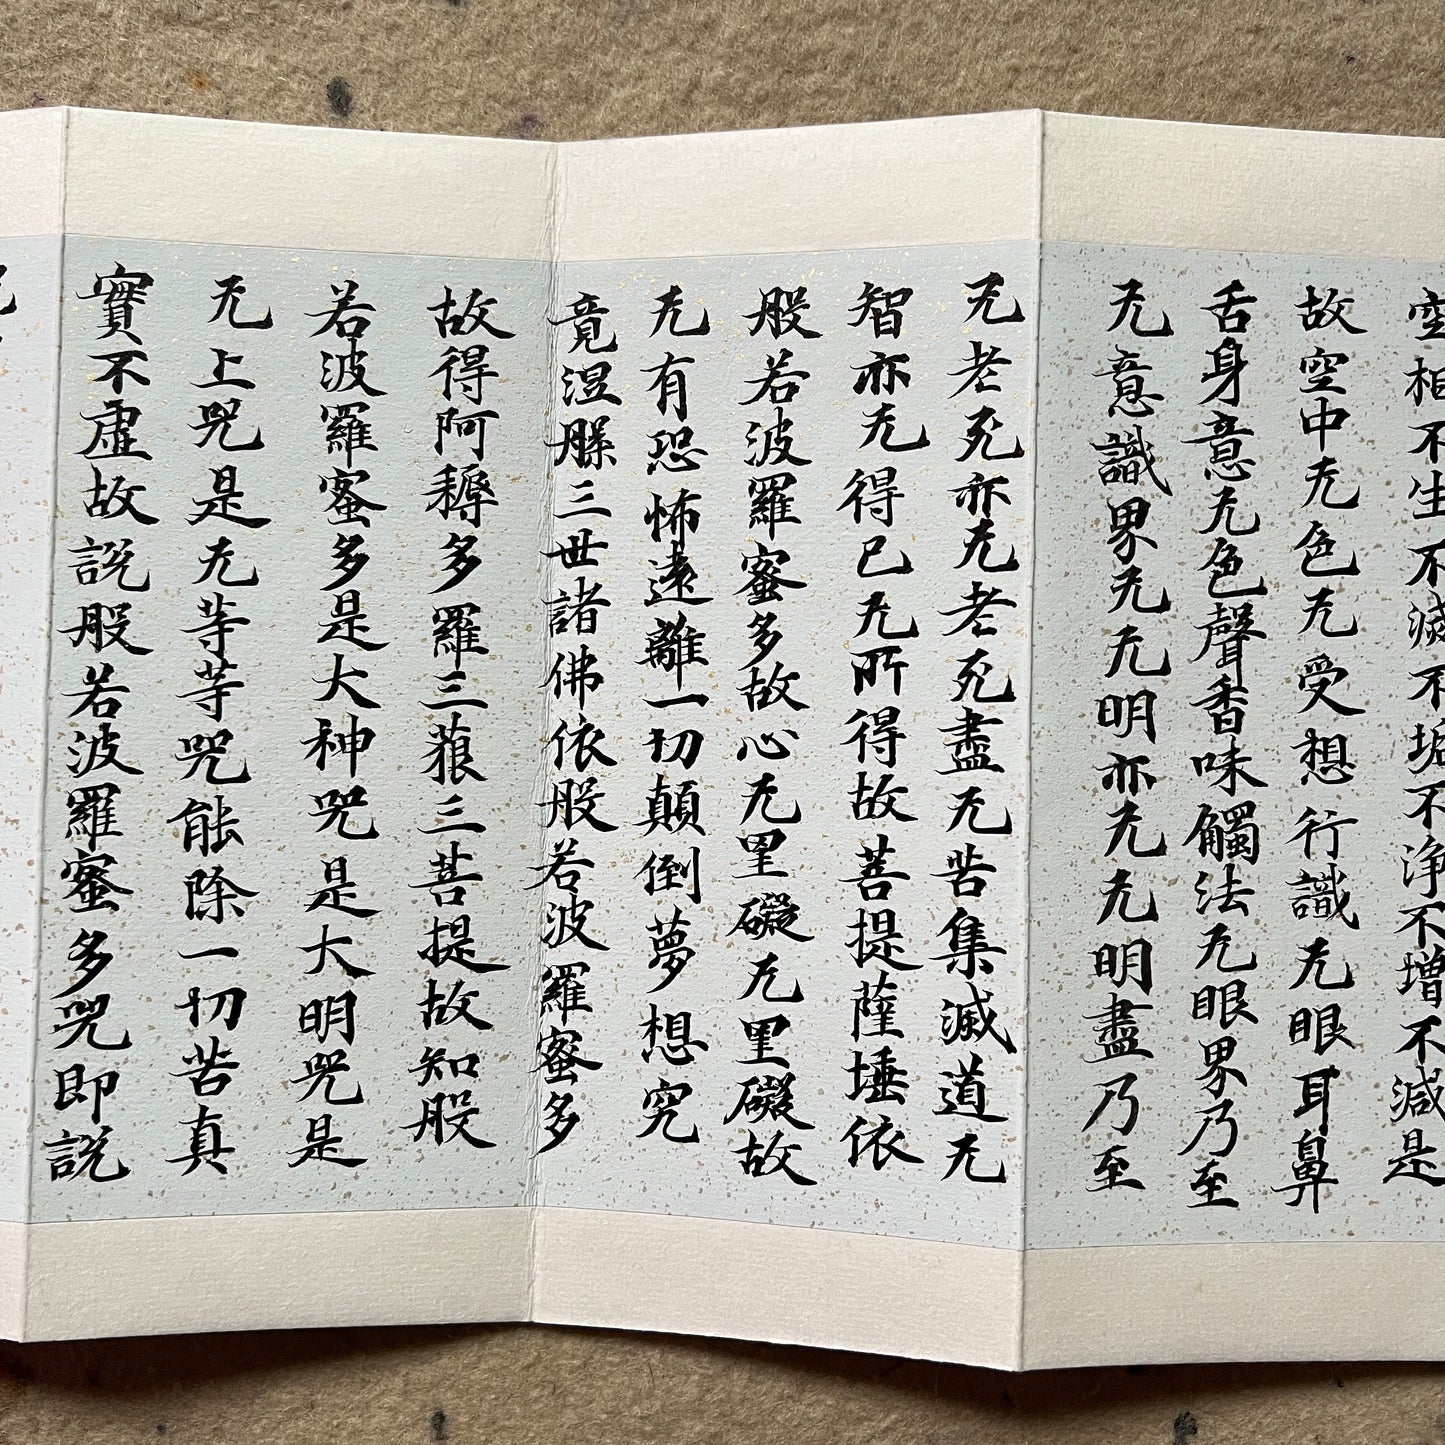 空相不生不滅不垢不浄不增不減是
故空中无色无受想行識无眼耳鼻
舌身意无色聲香味觸法无眼界乃至
无意識界无无明亦无无明盡乃至
无老死亦无老死盡无苦集滅道无
智亦无得已无所得故菩提薩埵依
般若波羅蜜多故心无罣礙无罣礙故
无有恐怖遠離一切顛倒夢想究
竟涅槃三世諸佛依般若波羅蜜多
故得阿耨多羅三藐三菩提故知般
若波羅蜜多是大神咒是大明咒是
无上咒是无等等咒能除一切苦真
實不虛故說般若波羅蜜多咒即說